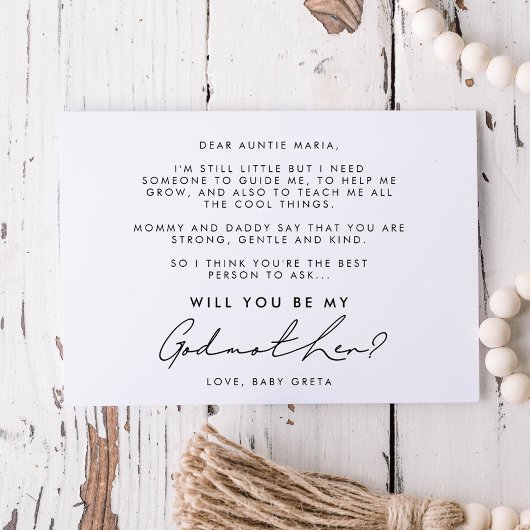 DEAR AUNTIE MARIA,
I'M STILL LITTLE BUT I NEED
SOMEONE TO GUIDE ME, TO HELP ME
GROW, AND ALSO TO TEACH ME ALL
THE COOL THINGS.
MOMMY AND DADDY SAY THAT YOU ARE
STRONG, GENTLE AND KIND.
SO I THINK YOU'RE THE BEST
PERSON TO ASK...
WILL YOU BE MY
Godmother?
LOVE, BABY GRETA